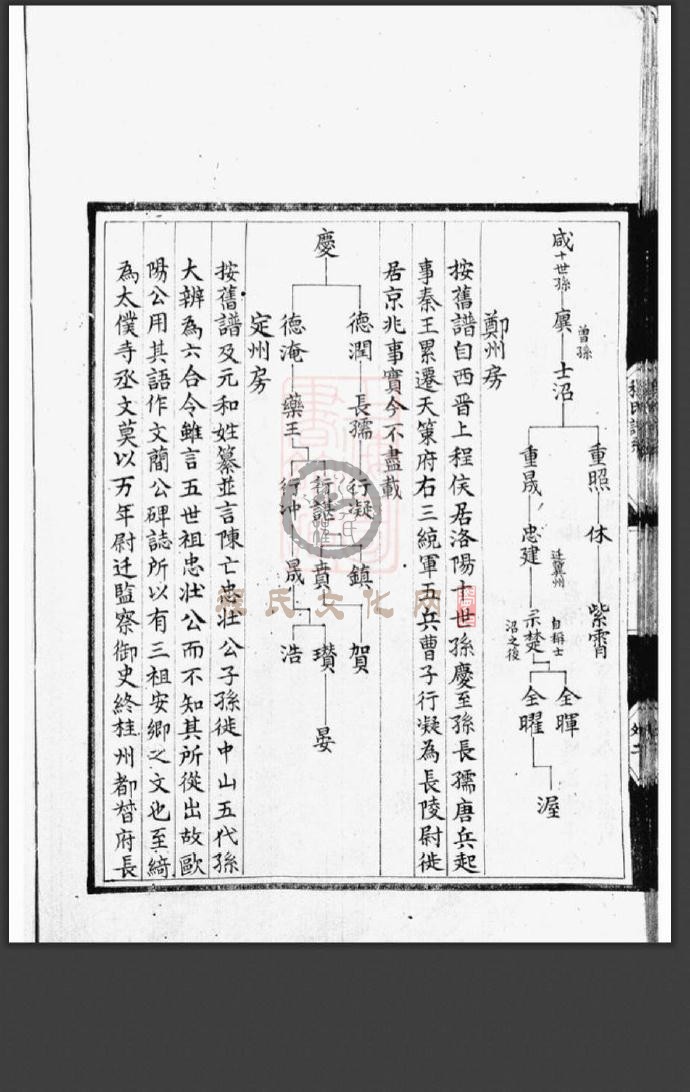 重照 休 紫霄
咸十世孫 廙 曾孫 士沼
重晟 忠建 遷冀州 示楚 自稱士沼之後
仝暉
仝曜
渥
鄭州房
按舊譜自西晋上程侯居洛陽十世孫慶至孫長孺唐兵起
事秦王累遷天策府右三統軍五兵曹子行凝為長陵尉徙
居京兆事實今不盡載
慶
德潤 長孺 行凝 鎮 賀
行諶 賁 瓚 晏
德淹 藥王 行冲 晟 浩
定州房
按舊譜及元和姓纂並言陳亡忠壯公子孫徙中山五代孫
大辨為六合令雖言五世祖忠壯公而不知其所從出故歐
陽公用其語作文簡公碑誌所以有三祖安鄉之文也至綺
為太僕寺丞文莫以万年尉迁監察御史終桂州都督府長
程氏文化网